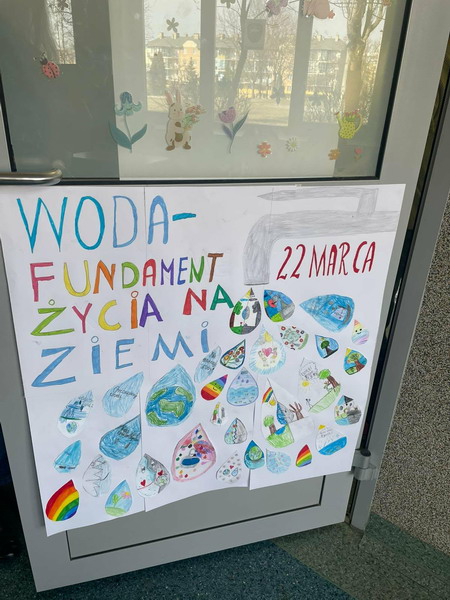 WODA-
FUNDAMENT
ŻYCIA NA
ZIEMI
22 MARCA